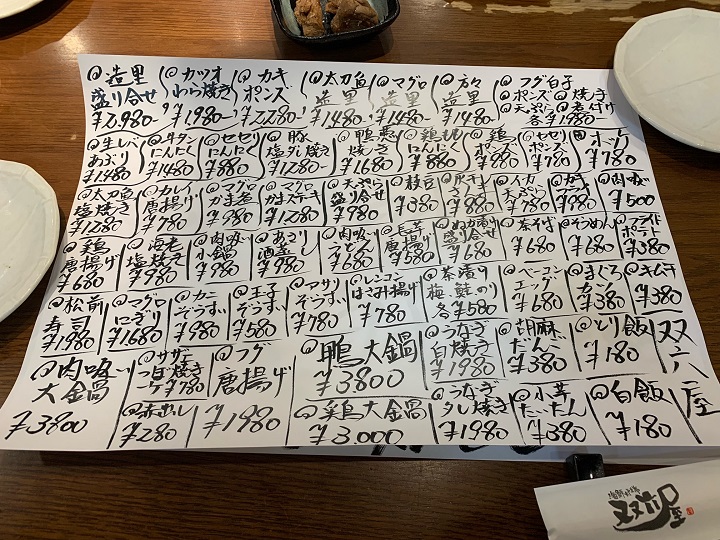 造里
盛り合せ
¥2,980
カツオ
わら焼き
¥1980
カキ
ポンズ
¥2280
太刀魚
造里
¥1480
マグロ
造里
¥1480
造里
¥1480
フグ白子
ポンズ 焼き
天ぷら 煮付け
各¥1980
生レバー
あぶり
¥1480
にんにく
¥1480
セセリ
にんにく
¥880
豚
塩ダレ焼き
¥1280
鴨
焼き
¥1680
鶏もも
にんにく
¥880
鶏
ポンズ
¥980
セセリ
ポンズ
¥780
¥780
太刀魚
塩焼き
¥1280
カレイ
唐揚げ
¥780
マグロ
かま煮
¥980
マグロ
かまステーキ
¥1280
天ぷら
盛り合せ
¥980
枝豆
¥380
¥880
イカ
天ぷら
¥780
カキ
フライ
¥980
肉吸
¥500
鶏
唐揚げ
¥680
海老
塩焼き
¥980
肉吸
小鍋
¥980
あさり
酒蒸し
¥980
肉吸
うどん
¥980
長芋
唐揚げ
¥580
ぬか漬け
盛り合せ
¥680
茶そば
¥680
そうめん
¥680
フライド
ポテト
¥380
松前
寿司
¥1980
マグロ
にぎり
¥1680
カニ
ぞうすい
¥980
玉子
ぞうすい
¥580
アサリ
ぞうすい
¥780
レンコン
はさみ揚げ
¥780
茶漬け
梅、鮭、のり
各¥580
ベーコン
エッグ
¥680
まぐろ
カツ
¥380
キムチ
¥380
肉吸
大鍋
¥3800
サザエ
つぼ焼き
¥780
赤出し
¥280
フグ
唐揚げ
¥1980
鴨大鍋
¥3800
鶏大鍋
¥3,000
うなぎ
白焼き
¥1980
うなぎ
タレ焼き
¥1980
胡麻
だんご
¥380
小芋
たいたん
¥380
とり飯
¥180
白飯
¥180
双六屋
双六屋